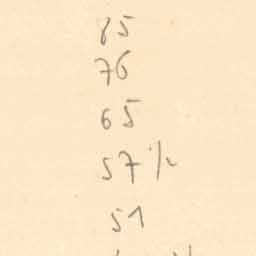 85
76
65
57 1/2
51